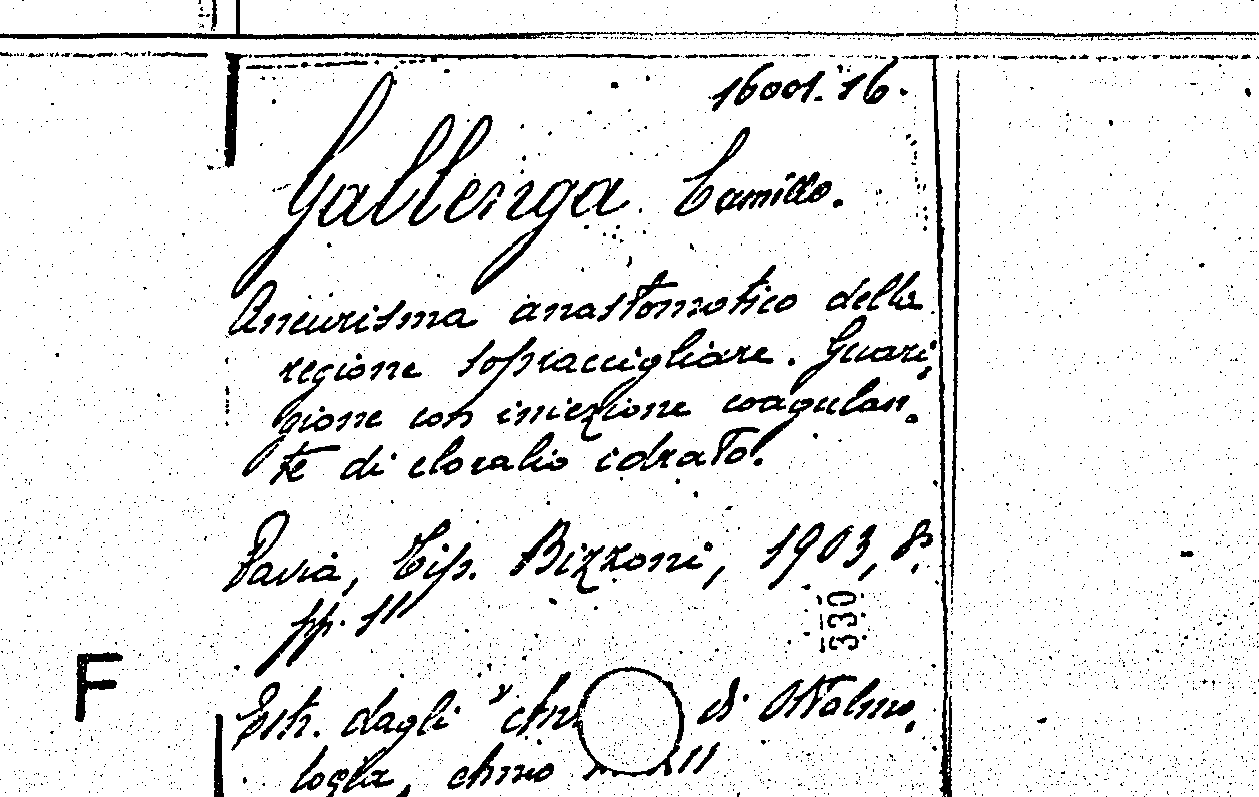 16001.16.
Gallenga Camillo.
Aneurisma anastomotico della
regione sopraccigliare. Guari,
gione con iniezione coagulan,
te di cloralio idrato.
Pavia, Tip. Bizzoni, 1903, 8°.
pp. 11
330
F
Estr. dagli " di Ottalmo,
logia, Anno